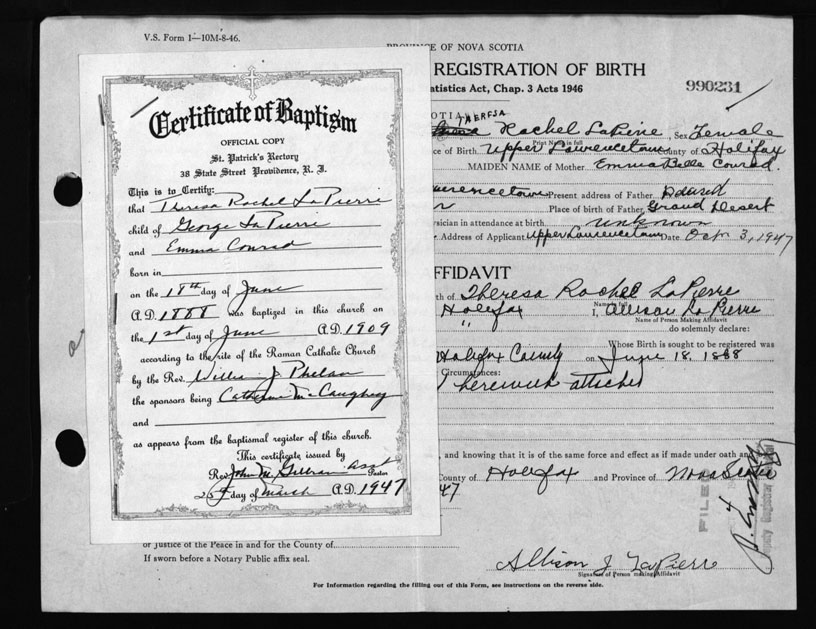 V.S. Form 1—10M-8-46.
PROVINCE OF NOVA SCOTIA
REGISTRATION OF BIRTH
990231
atistics Act, Chap. 3 Acts 1946
THERESA
Rachel LaPierre, Sex Female
Print Name in full
e of Birth. Upper Lawrencetown County of Halifax
MAIDEN NAME of Mother Emma Belle Conrad.
wrencetown Present address of Father,
Place of birth of Father, Grand Desert
sician in attendance at birth unknown
Address of Applicant Upper Lawrencetown Date Oct 3, 1947
FFIDAVIT
th of Theresa Rachel LaPierre
Name in full
Halifax I, Allison LaPierre
Name of Person Making Affidavit
" do solemnly declare:
Whose Birth is sought to be registered was
Halifax County on June 18, 1888
Circumstances:
herewith attached
, and knowing that it is of the same force and effect as if made under oath and
County of Halifax and Province of Nova Scotia
47
FILE
or Justice of the Peace in and for the County of
If sworn before a Notary Public affix seal.
Allison J LaPierre
Signature of Person making Affidavit
For Information regarding the filling out of this Form, see instructions on the reverse side.
Certificate of Baptism
OFFICIAL COPY
St. Patrick's Rectory
38 State Street Providence, R. I.
This is to Certify:
that Theresa Rachel LaPierre
child of George LaPierre
and Emma Conrad
born in
on the 18th day of June
A.D. 1888 was baptized in this church on
the 1st day of June A.D. 1909
according to the rite of the Roman Catholic Church
by the Rev. Willis J. Phelan
the sponsors being Catherine McCaughey
and
as appears from the baptismal register of this church.
This certificate issued by
Rev. John M. Asst
Pastor
25 day of March A.D. 1947